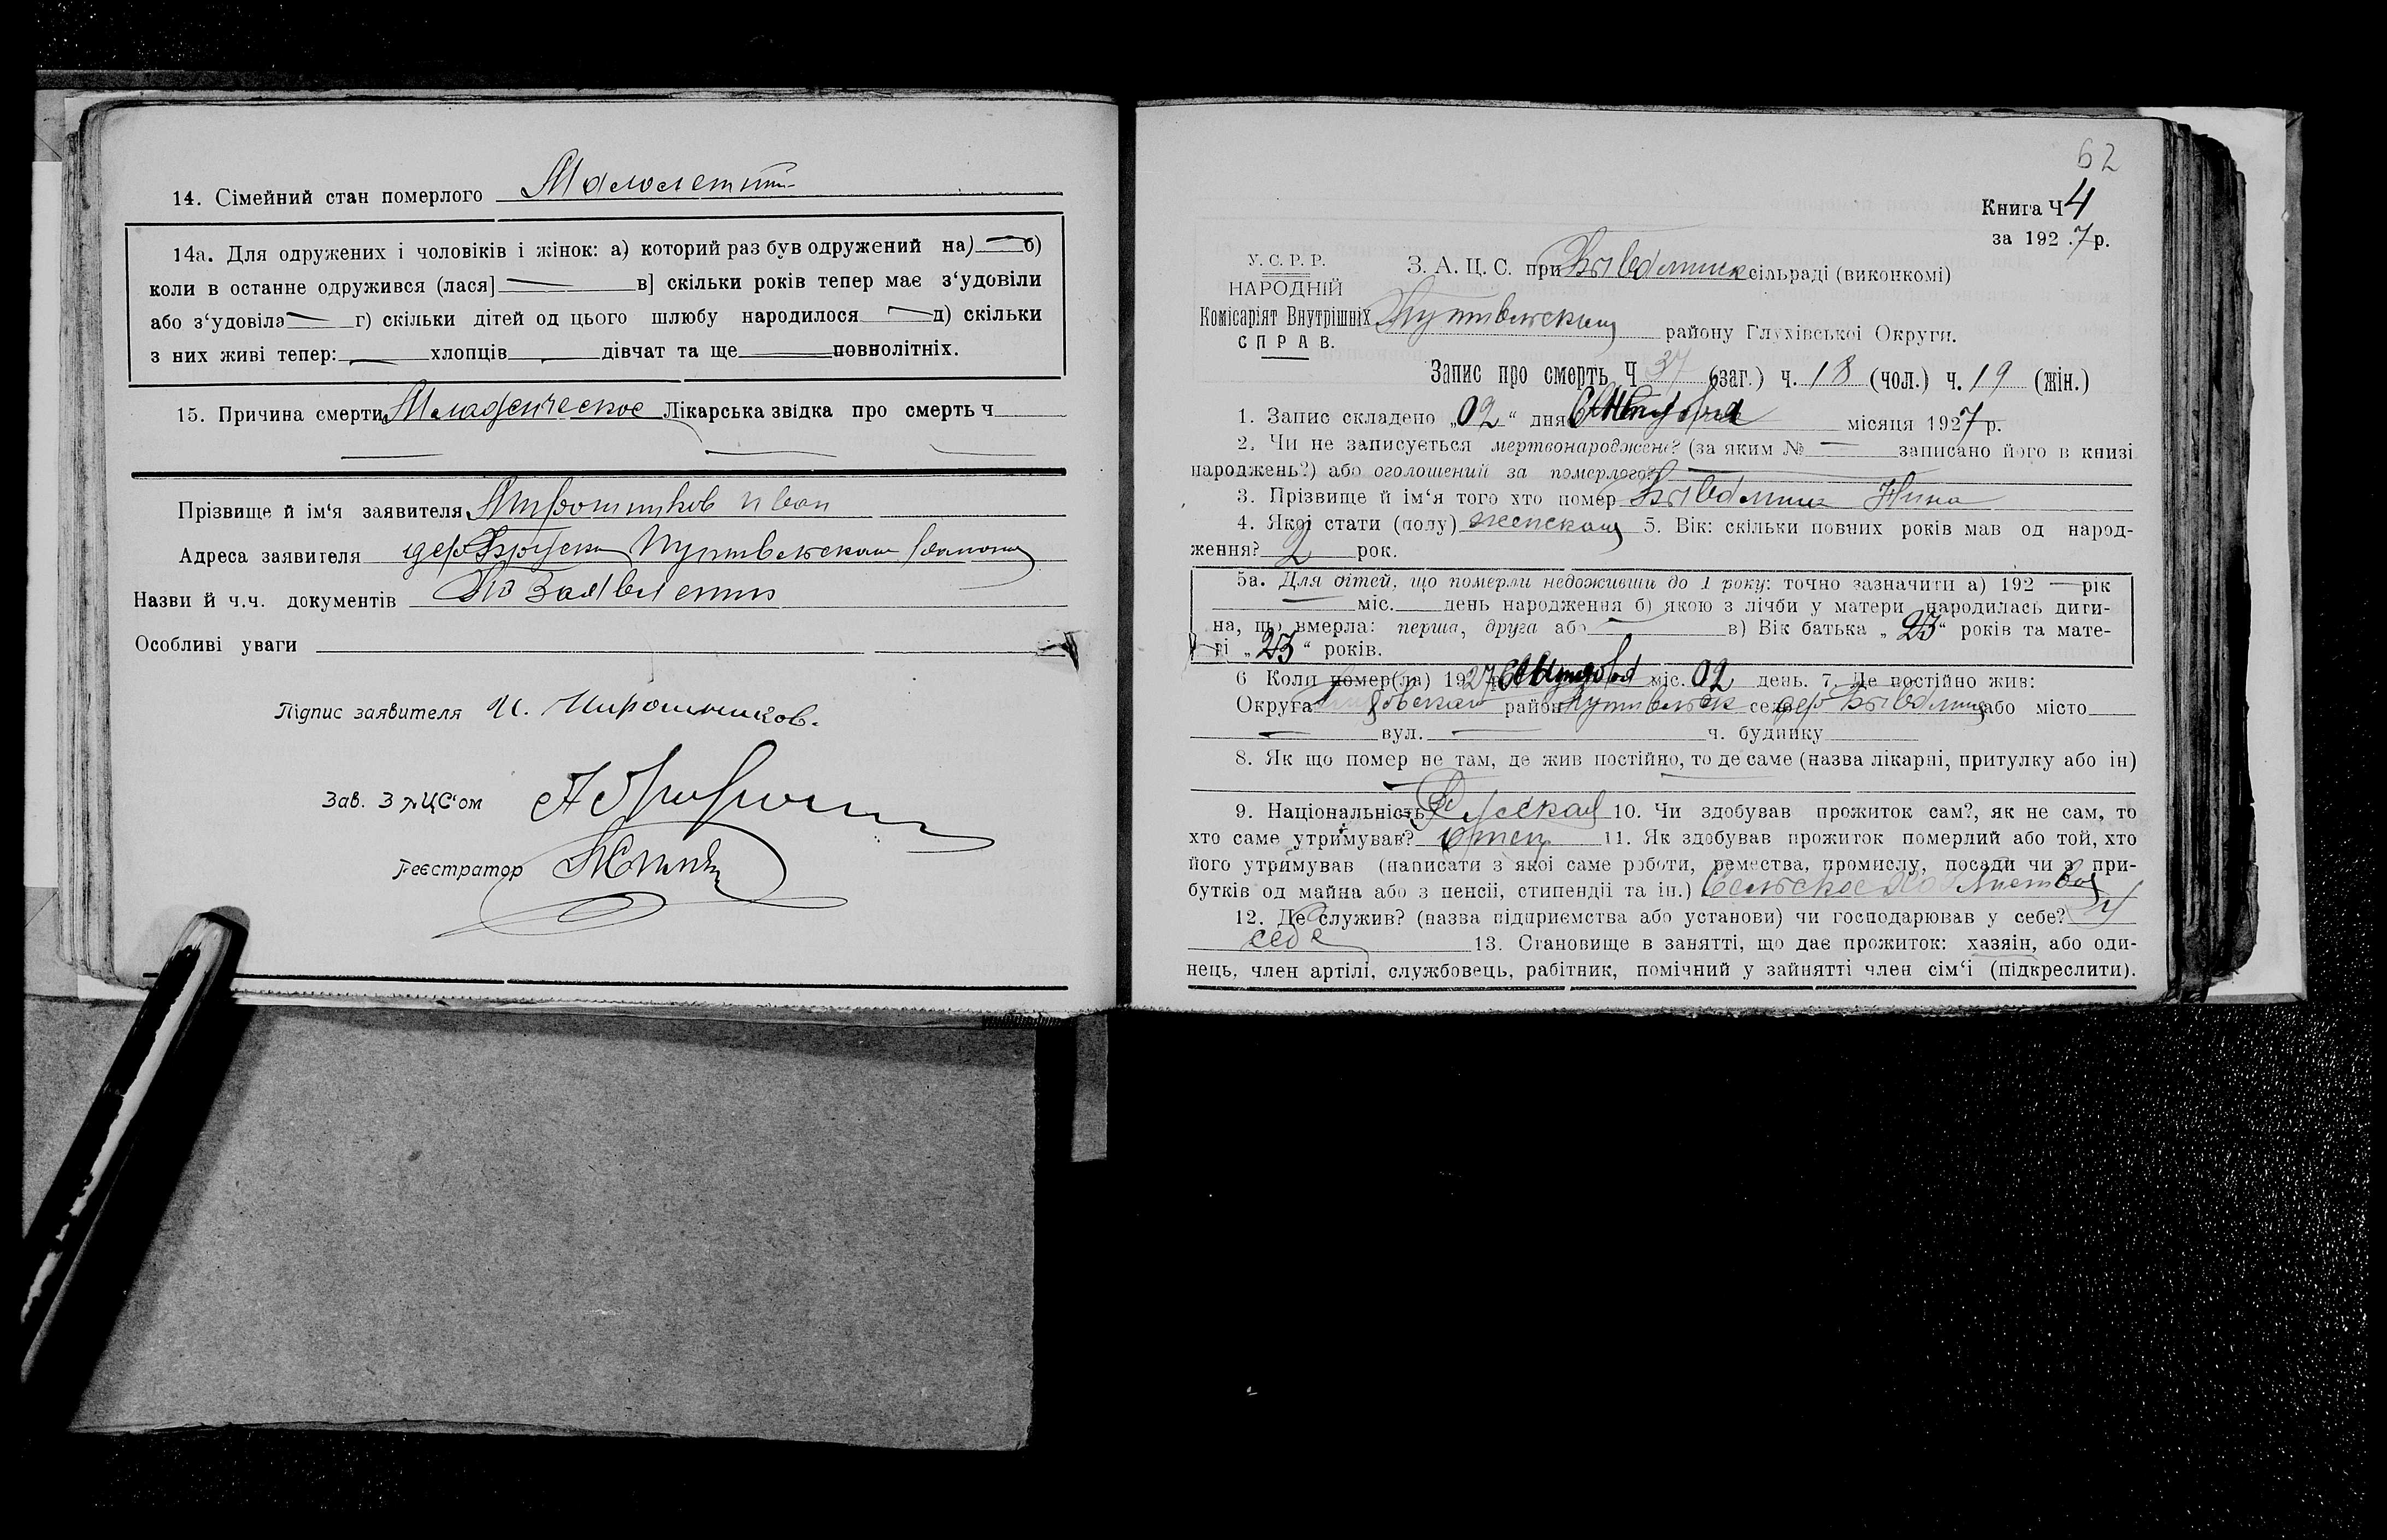 14. Сімейний стан померлого Малолетний
14а. Для одружених і чоловіків і жінок: а) которий раз був одружений на) б)
коли в останне одружився (лася] в] скільки років тепер має з‘удовіли
або з‘удовіла г) скільки дітей од цього шлюбу народилося д) скільки
з них живі тепер: хлопців дівчат та ще повнолітніх.
15. Причина смерти Младенческое Лікарська звідка про смерть ч
Прізвище й ім‘я заявителя Мирошников Иван
Адреса заявителя дер Путивльского района
Назви й ч.ч. документів По заявлению
Особливі уваги
Підпис заявителя И. Мирошников.
Зав. ЗАЦС‘ом
Реєстратор
62
Книга Ч 4
за 1927 р.
У. С. Р. Р.
НАРОДНІЙ
Комісаріят Внутрішніх
СПРАВ.
З. А. Ц. С. при сільраді (виконкомі)
Путивльском району Глухівської Округи.
Запис про смерть Ч 37 (заг.) ч. 18 (чол.) ч. 19 (жін.)
1. Запис складено „02“ дня місяця 1927 р.
2. Чи не записується мертвонароджене? (за яким № записано його в книзі
народжень?) або оголошений за померлого?
3. Прізвище й ім‘я того хто помер Нина
4. Якої стати (полу) женском 5. Вік: скільки повних років мав од народ-
ження? 2 рок.
5а. Для дітей, що померли недоживши до 1 року: точно зазначити а) 192 рік
міс. день народження б) якою з лічби у матери народилась дити-
на, що вмерла: перша, друга або в) Вік батька „23“ років та мате-
рі „23“ років.
6 Коли помер(ла) 1927 міс. 02 день. 7. Де постійно жив:
Округа район Путивльск село дер або місто
вул. ч. будинку
8. Як що помер не там, де жив постійно, то де саме (назва лікарні, притулку або ін)
9. Національність Русская 10. Чи здобував прожиток сам?, як не сам, то
хто саме утримував? отец 11. Як здобував прожиток померлий або той, хто
його утримував (написати з якої саме роботи, ремества, промислу, посади чи з при-
бутків од майна або з пенсії, стипендії та ін.) Сельское хозяйство
12. Де служив? (назва підприємства або установи) чи господарював у себе? у
себе 13. Становище в занятті, що дає прожиток: хазяін, або оди-
нець, член артілі, службовець, рабітник, помічний у зайнятті член сім‘і (підкреслити).